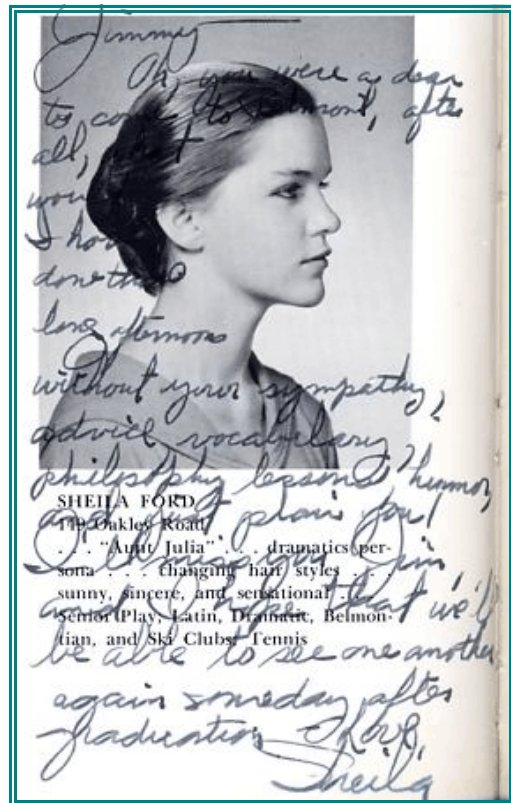 Jimmy—
Oh, you were a dear
to come to Belmont, after
all, what
would
I have
done those
long afternoons
without your sympathy,
advice, vocabulary,
philosophy lessons, humor,
and just plain you!
I'll miss you, Jim,
and I hope that we'll
be able to see one another
again someday after
graduation Love,
Sheila
SHEILA FORD
119 Oakley Road
. . . "Aunt Julia" . . . dramatics per-
sona . . . changing hair styles . . .
sunny, sincere, and sensational . . .
Senior Play; Latin, Dramatic, Belmon-
tian, and Ski Clubs; Tennis